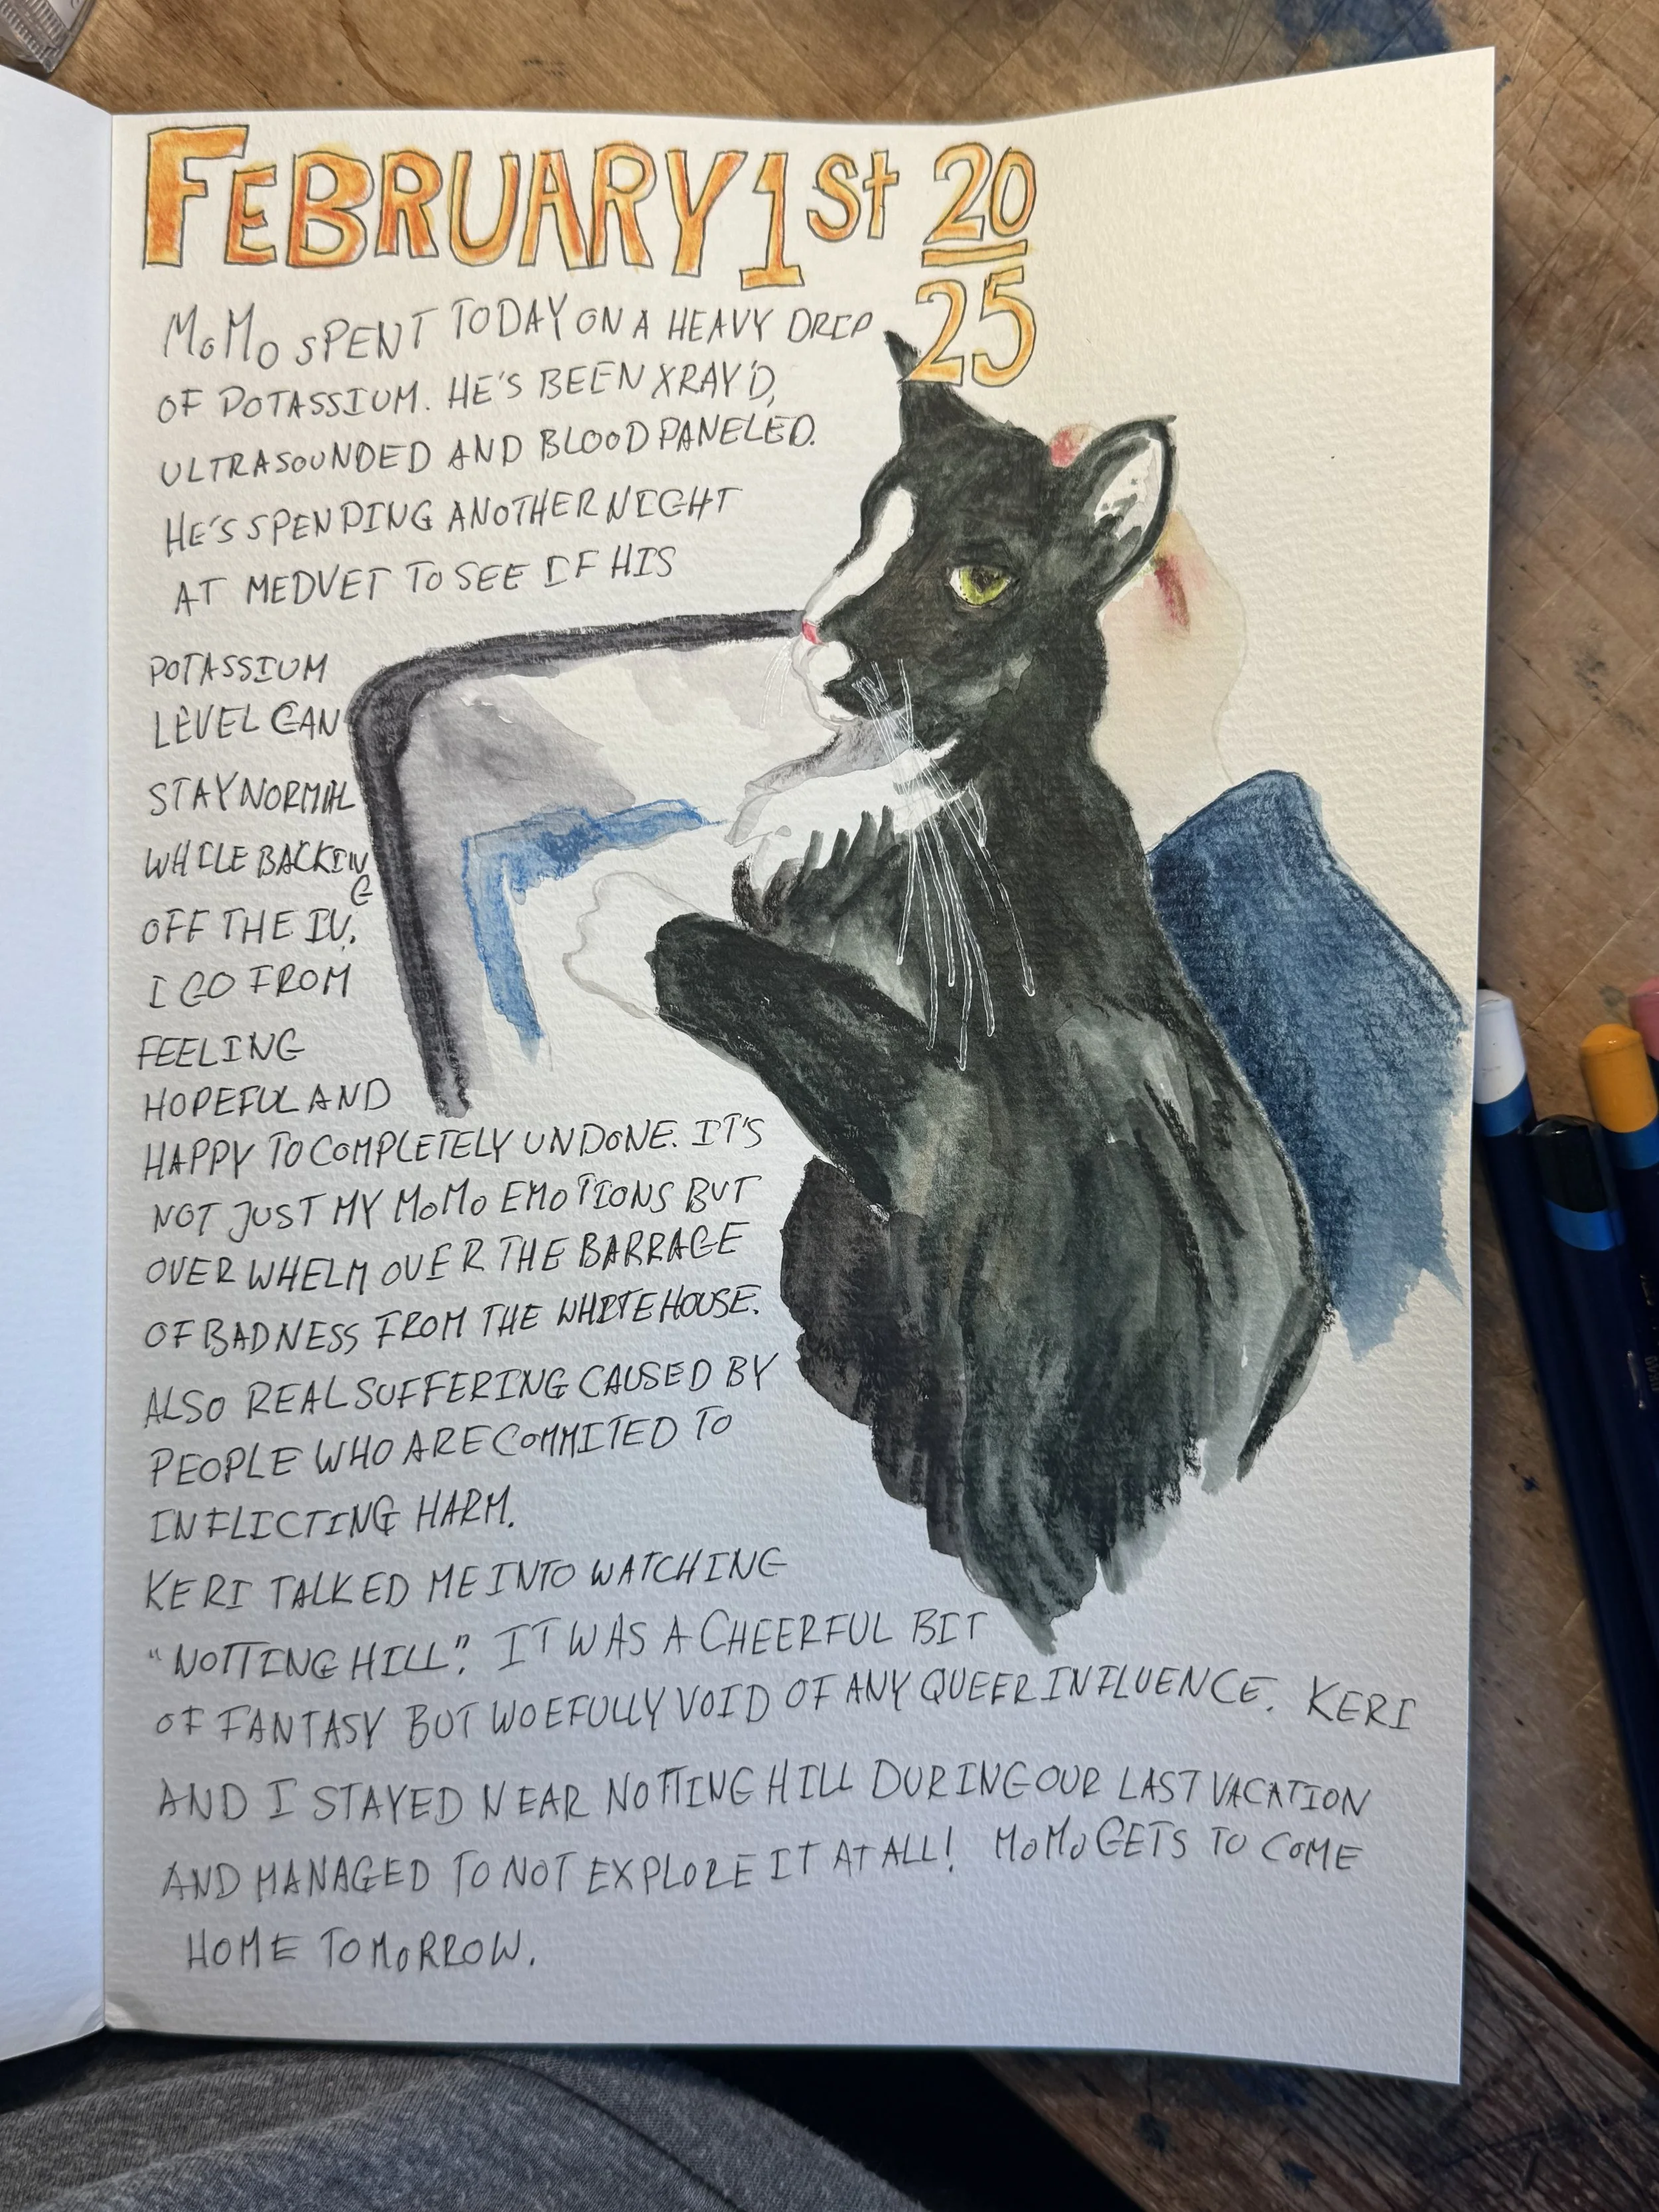 FEBRUARY 1st 20
25
MoMo SPENT TODAY ON A HEAVY DRIP
OF POTASSIUM. HE'S BEEN XRAY'D,
ULTRASOUNDED AND BLOOD PANELED.
HE'S SPENDING ANOTHER NIGHT
AT MEDVET TO SEE IF HIS
POTASSIUM
LEVEL CAN
STAY NORMAL
WHILE BACKING
OFF THE IV.
I GO FROM
FEELING
HOPEFUL AND
HAPPY TO COMPLETELY UNDONE. IT'S
NOT JUST MY MoMo EMOTIONS BUT
OVER WHELM OVER THE BARRAGE
OF BADNESS FROM THE WHITEHOUSE.
ALSO REAL SUFFERING CAUSED BY
PEOPLE WHO ARE COMMITED TO
INFLICTING HARM.
KERI TALKED ME INTO WATCHING
"NOTTING HILL". IT WAS A CHEERFUL BIT
OF FANTASY BUT WOEFULLY VOID OF ANY QUEER INFLUENCE. KERI
AND I STAYED NEAR NOTTING HILL DURING OUR LAST VACATION
AND MANAGED TO NOT EXPLORE IT AT ALL! MoMo GETS TO COME
HOME TOMORROW.